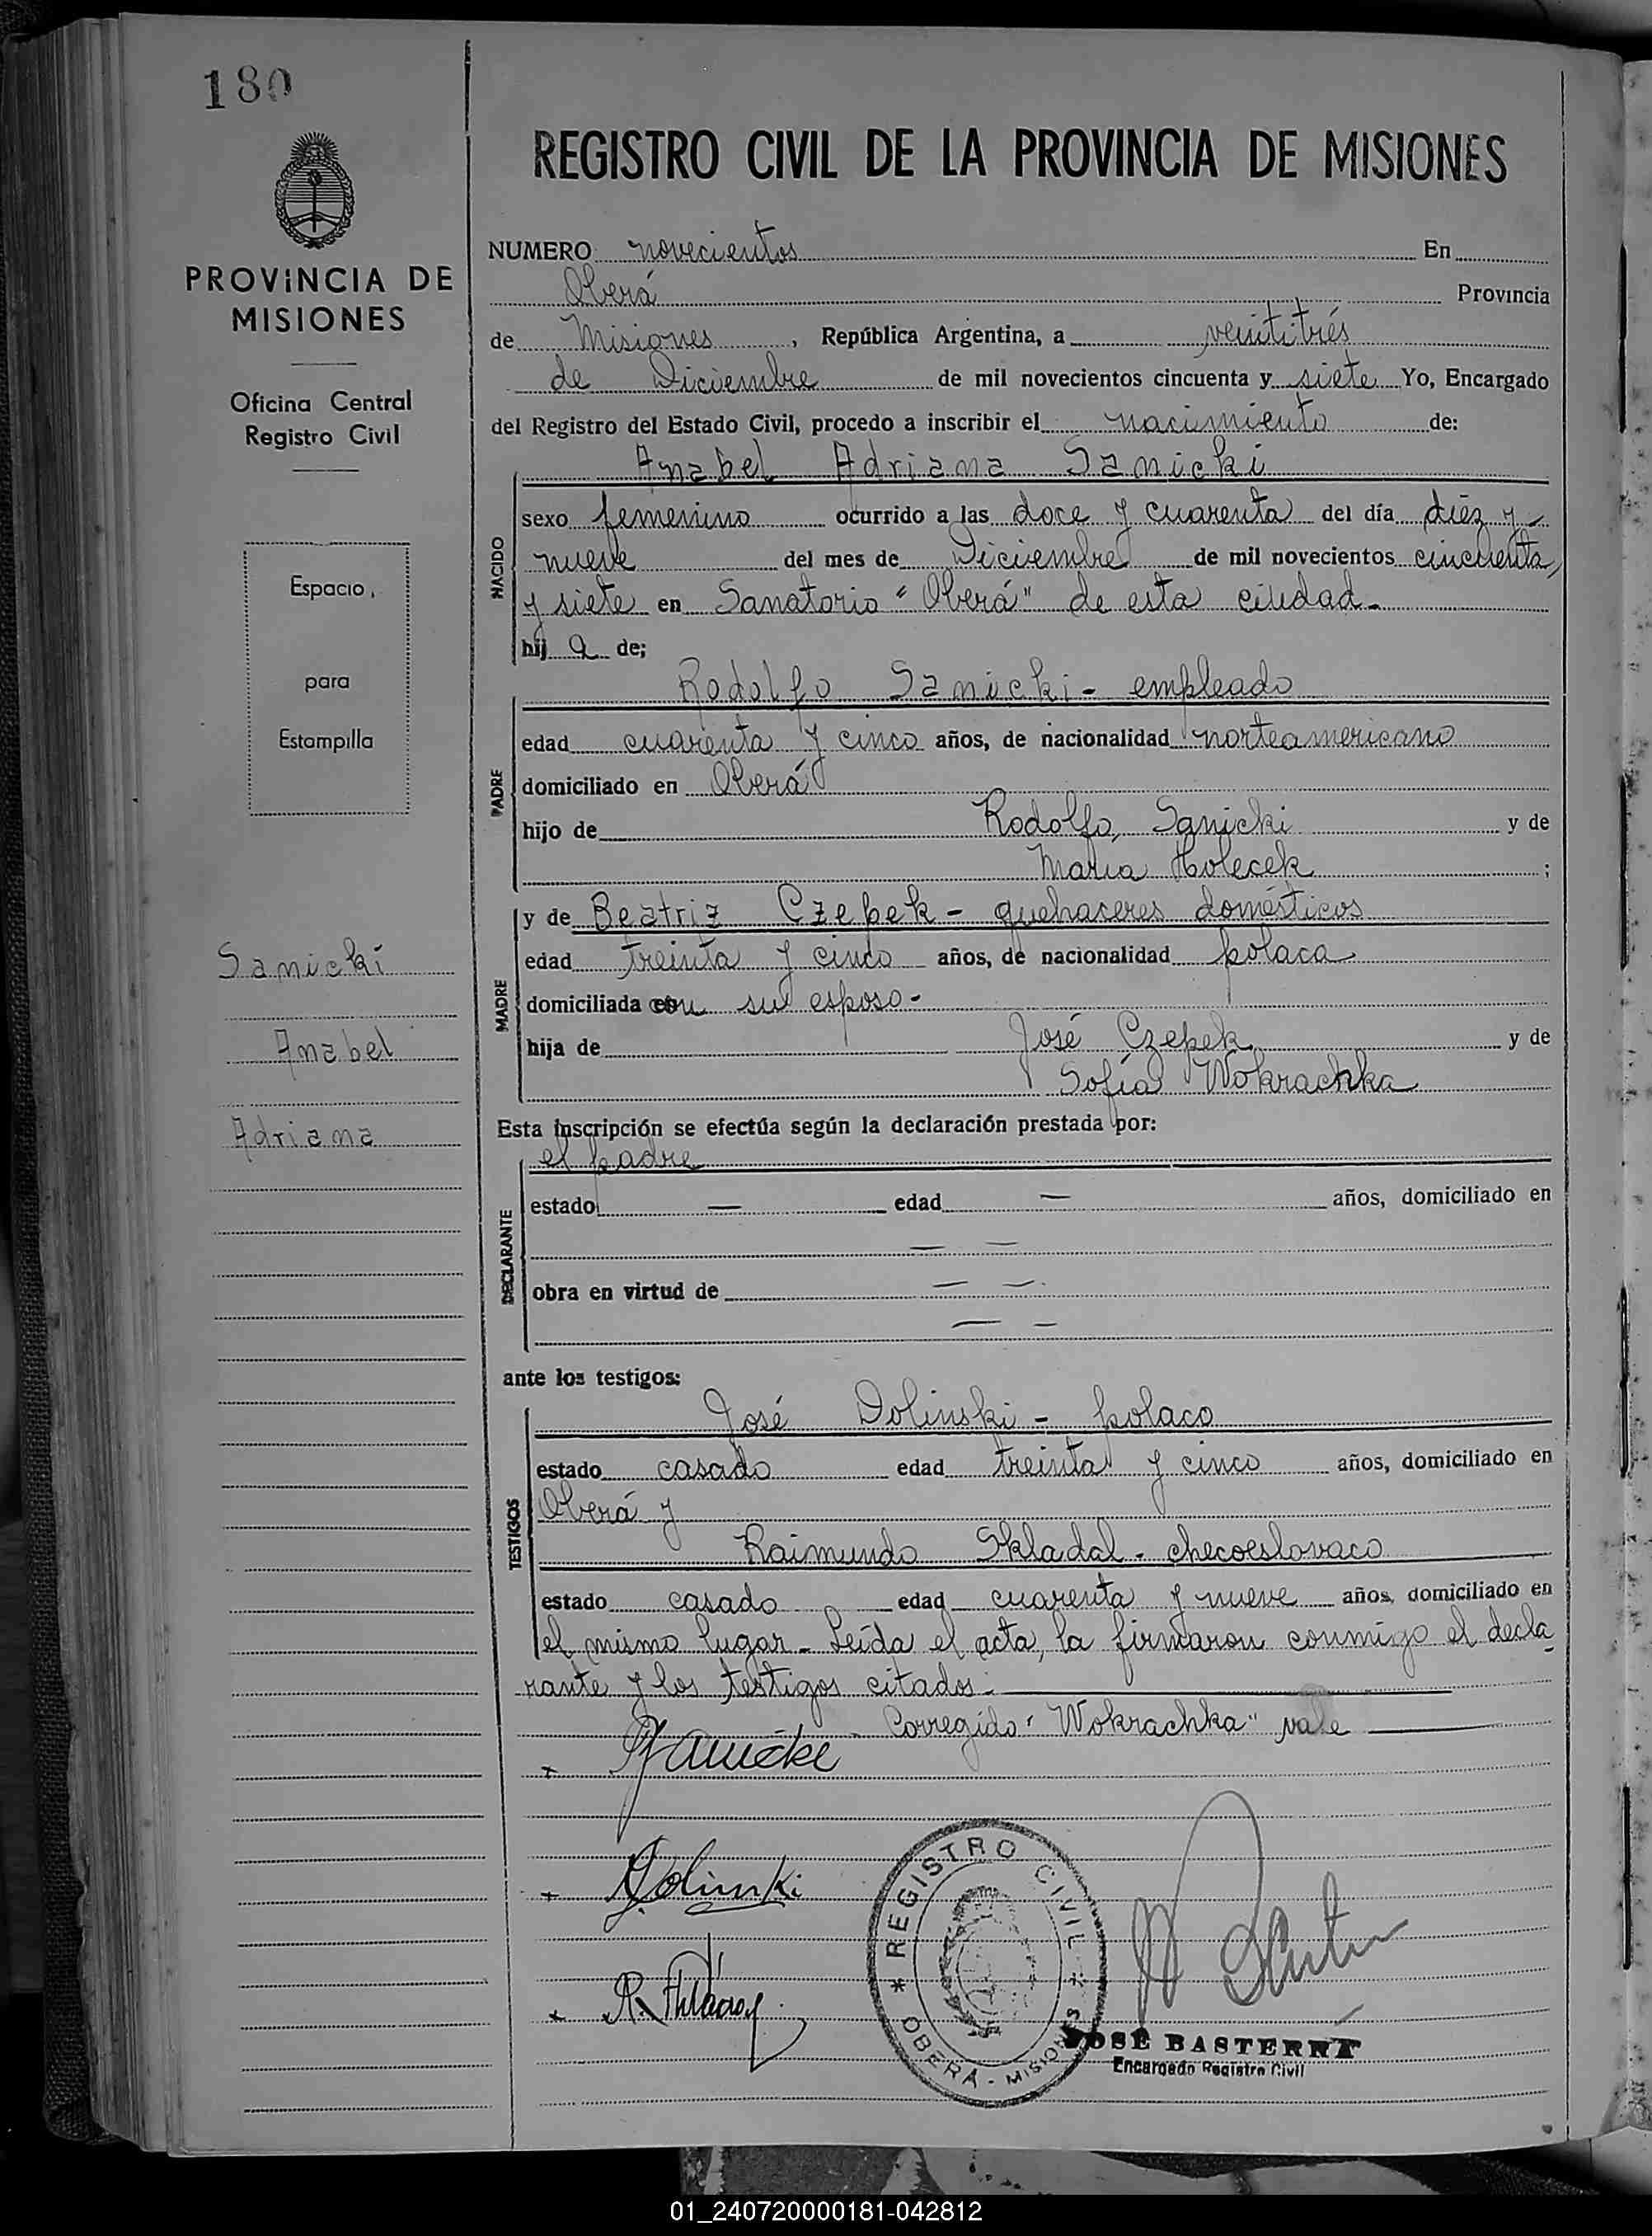 180
PROVINCIA DE
MISIONES
Oficina Central
Registro Civil
Espacio
para
Estampilla
Sanicki
Anabel
Adriana
REGISTRO CIVIL DE LA PROVINCIA DE MISIONES
NUMERO novecientos En
Oberá Provincia
de Misiones, República Argentina, a veintitrés
de Diciembre de mil novecientos cincuenta y siete Yo, Encargado
del Registro del Estado Civil, procedo a inscribir el nacimiento de:
Anabel Adriana Sanicki
NACIDO
sexo femenino ocurrido a las doce y cuarenta del día diéz y
nueve del mes de Diciembre de mil novecientos cincuenta
y siete en Sanatorio "Oberá" de esta ciudad.-
hij a de;
Rodolfo Sanicki - empleado
PADRE
edad cuarenta y cinco años, de nacionalidad norteamericano
domiciliado en Oberá
hijo de Rodolfo Sanicki y de
María Holecek ;
y de Beatriz Czepek - quehaceres domésticos
MADRE
edad treinta y cinco años, de nacionalidad polaca
domiciliada con su esposo-
hija de José Czepek y de
Sofía Wokrachka
Esta inscripción se efectúa según la declaración prestada por:
el padre
DECLARANTE
estado — edad — años, domiciliado en
— —
obra en virtud de — —
— —
ante los testigos:
José Dolinski - polaco
TESTIGOS
estado casado edad treinta y cinco años, domiciliado en
Oberá y
Raimundo Skladal - checoeslovaco
estado casado edad cuarenta y nueve años, domiciliado en
el mismo lugar - Leída el acta, la firmaron conmigo el decla
rante y los testigos citados.
Corregido: "Wokrachka" vale
Dolinski
REGISTRO CIVIL
OBERÁ - MISIONES
JOSÉ BASTERRA
Encargado Registro Civil
01_240720000181-042812